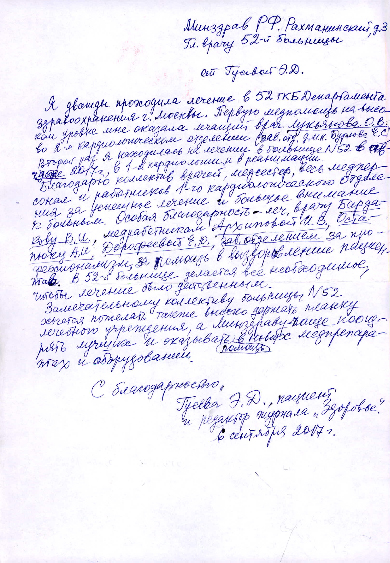 Минздрав РФ. Рахмановский, д.3
Гл. врачу 52-й больницы
от Гусевой Э.Д.
Я дважды проходила лечение в 52 ГКБ Департамента
здравоохранения г. Москвы. Первую медпомощь на высо-
ком уровне мне оказала лечащий врач Лукьянова О.В.
во 2-м кардиологическом отделении
Второй раз я находилась на лечении в больнице №52 в
2017 г., в 1-м кардиологии и реанимации.
Благодарю коллектив врачей, медсестер, весь медпер-
сонал и работников 1-го кардиологического отделе-
ния за успешное лечение и большое внимание
к больным. Особая благодарность леч. врачу
медработникам Архиповой
Дорофеевой за про-
фессионализм, за помощь в выздоровление пациен-
тов. В 52-й больнице делается все необходимое,
чтобы лечение было действенным.
Замечательному коллективу больницы №52
хочется пожелать также высоко держать планку
лечебного учреждения, а Минздраву чаще поощ-
рять лучших и оказывать помощь в новых медпрепара-
тах и оборудовании.
С благодарностью,
Гусева Э.Д., пациент
и редактор журнала „Здоровье".
6 сентября 2017 г.